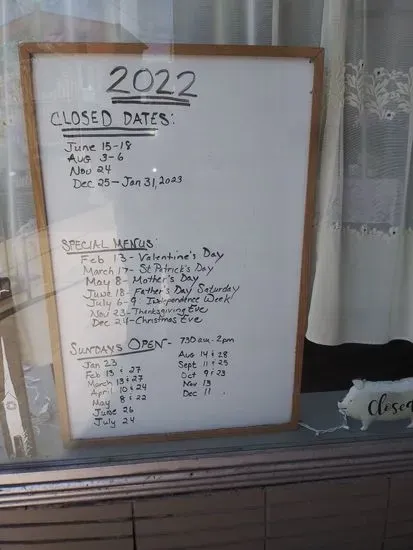 2022
CLOSED DATES:
June 15-18
Aug 3-6
Nov 24
Dec 25 - Jan 31, 2023
SPECIAL MENUS:
Feb 13 - Valentine's Day
March 17 - St Patrick's Day
May 8 - Mother's Day
June 18 - Father's Day Saturday
July 6-9 Independence Week
Nov 23 - Thanksgiving Eve
Dec 24 - Christmas Eve
SUNDAYS OPEN - 730 am - 2pm
Jan 23
Feb 13 & 27
March 13 & 27
April 10 & 24
May 8 & 22
June 26
July 24
Aug 14 & 28
Sept 11 & 25
Oct 9 & 23
Nov 13
Dec 11
Closed